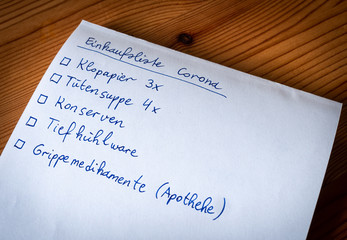 Einkaufsliste Corona
☐ Klopapier 3x
☐ Tütensuppe 4x
☐ Konserven
☐ Tiefkühlware
☐ Grippemedikamente (Apotheke)